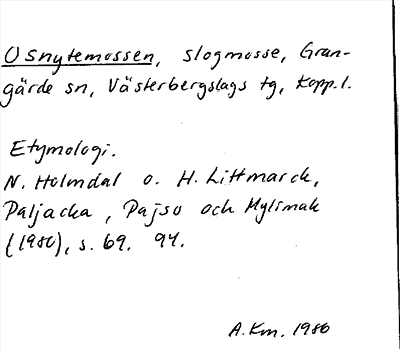 Osnytemossen, slogmosse, Gran-
gärde sn, Västerbergslags tg, Kopp. l.
Etymologi.
N. Holmdal o. H. Littmarck,
Paljacka, Pajso och Mylimak
(1980), s. 69. 94.
A.Km. 1986